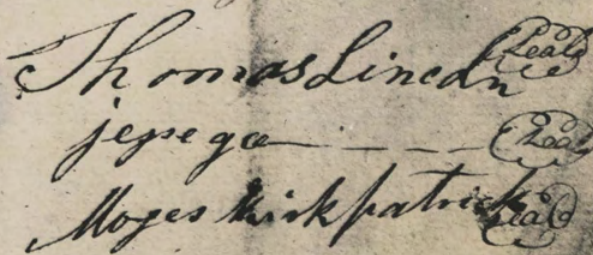 Thomas Lincoln Seal
jesse ga Seal
Moses Kirkpatrick Seal